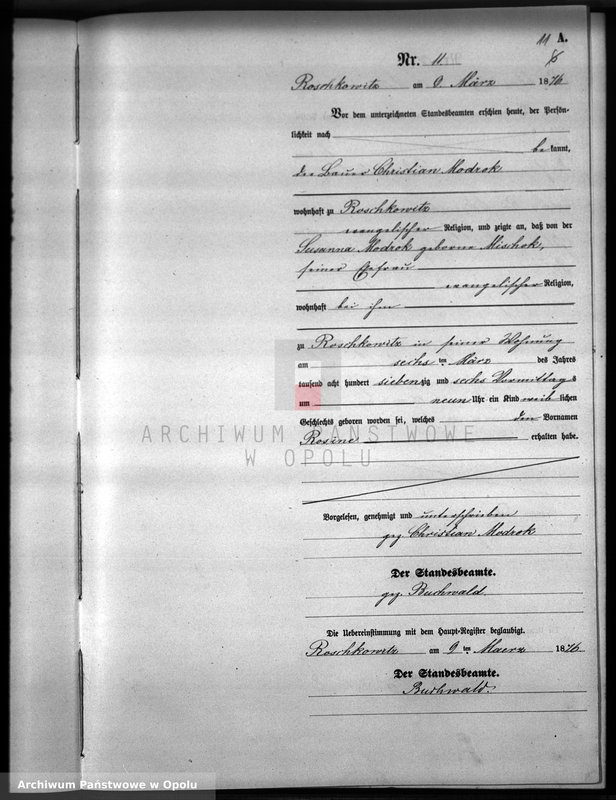 11 A.
Nr. 11.
Roschkowitz am 9. März 1876
Vor dem unterzeichneten Standesbeamten erschien heute, der Persön-
lichkeit nach
bekannt,
der Bauer Christian Modrok
wohnhaft zu Roschkowitz
evangelischer Religion, und zeigte an, daß von der
Susanna Modrok geborne Mischok,
seiner Ehefrau
evangelischer Religion,
wohnhaft bei ihm
zu Roschkowitz in seiner Wohnung
am sechs ten März des Jahres
tausend acht hundert siebenzig und sechs Vormittags
um neun Uhr ein Kind weiblichen
Geschlechts geboren worden sei, welches den Vornamen
Rosine erhalten habe.
Vorgelesen, genehmigt und unterschrieben
gez. Christian Modrok
Der Standesbeamte.
gez. Buchwald.
Die Uebereinstimmung mit dem Haupt-Register beglaubigt.
Roschkowitz am 9 ten Maerz 1876.
Der Standesbeamte.
Buchwald.
ARCHIWUM PAŃSTWOWE
W OPOLU
Archiwum Państwowe w Opolu